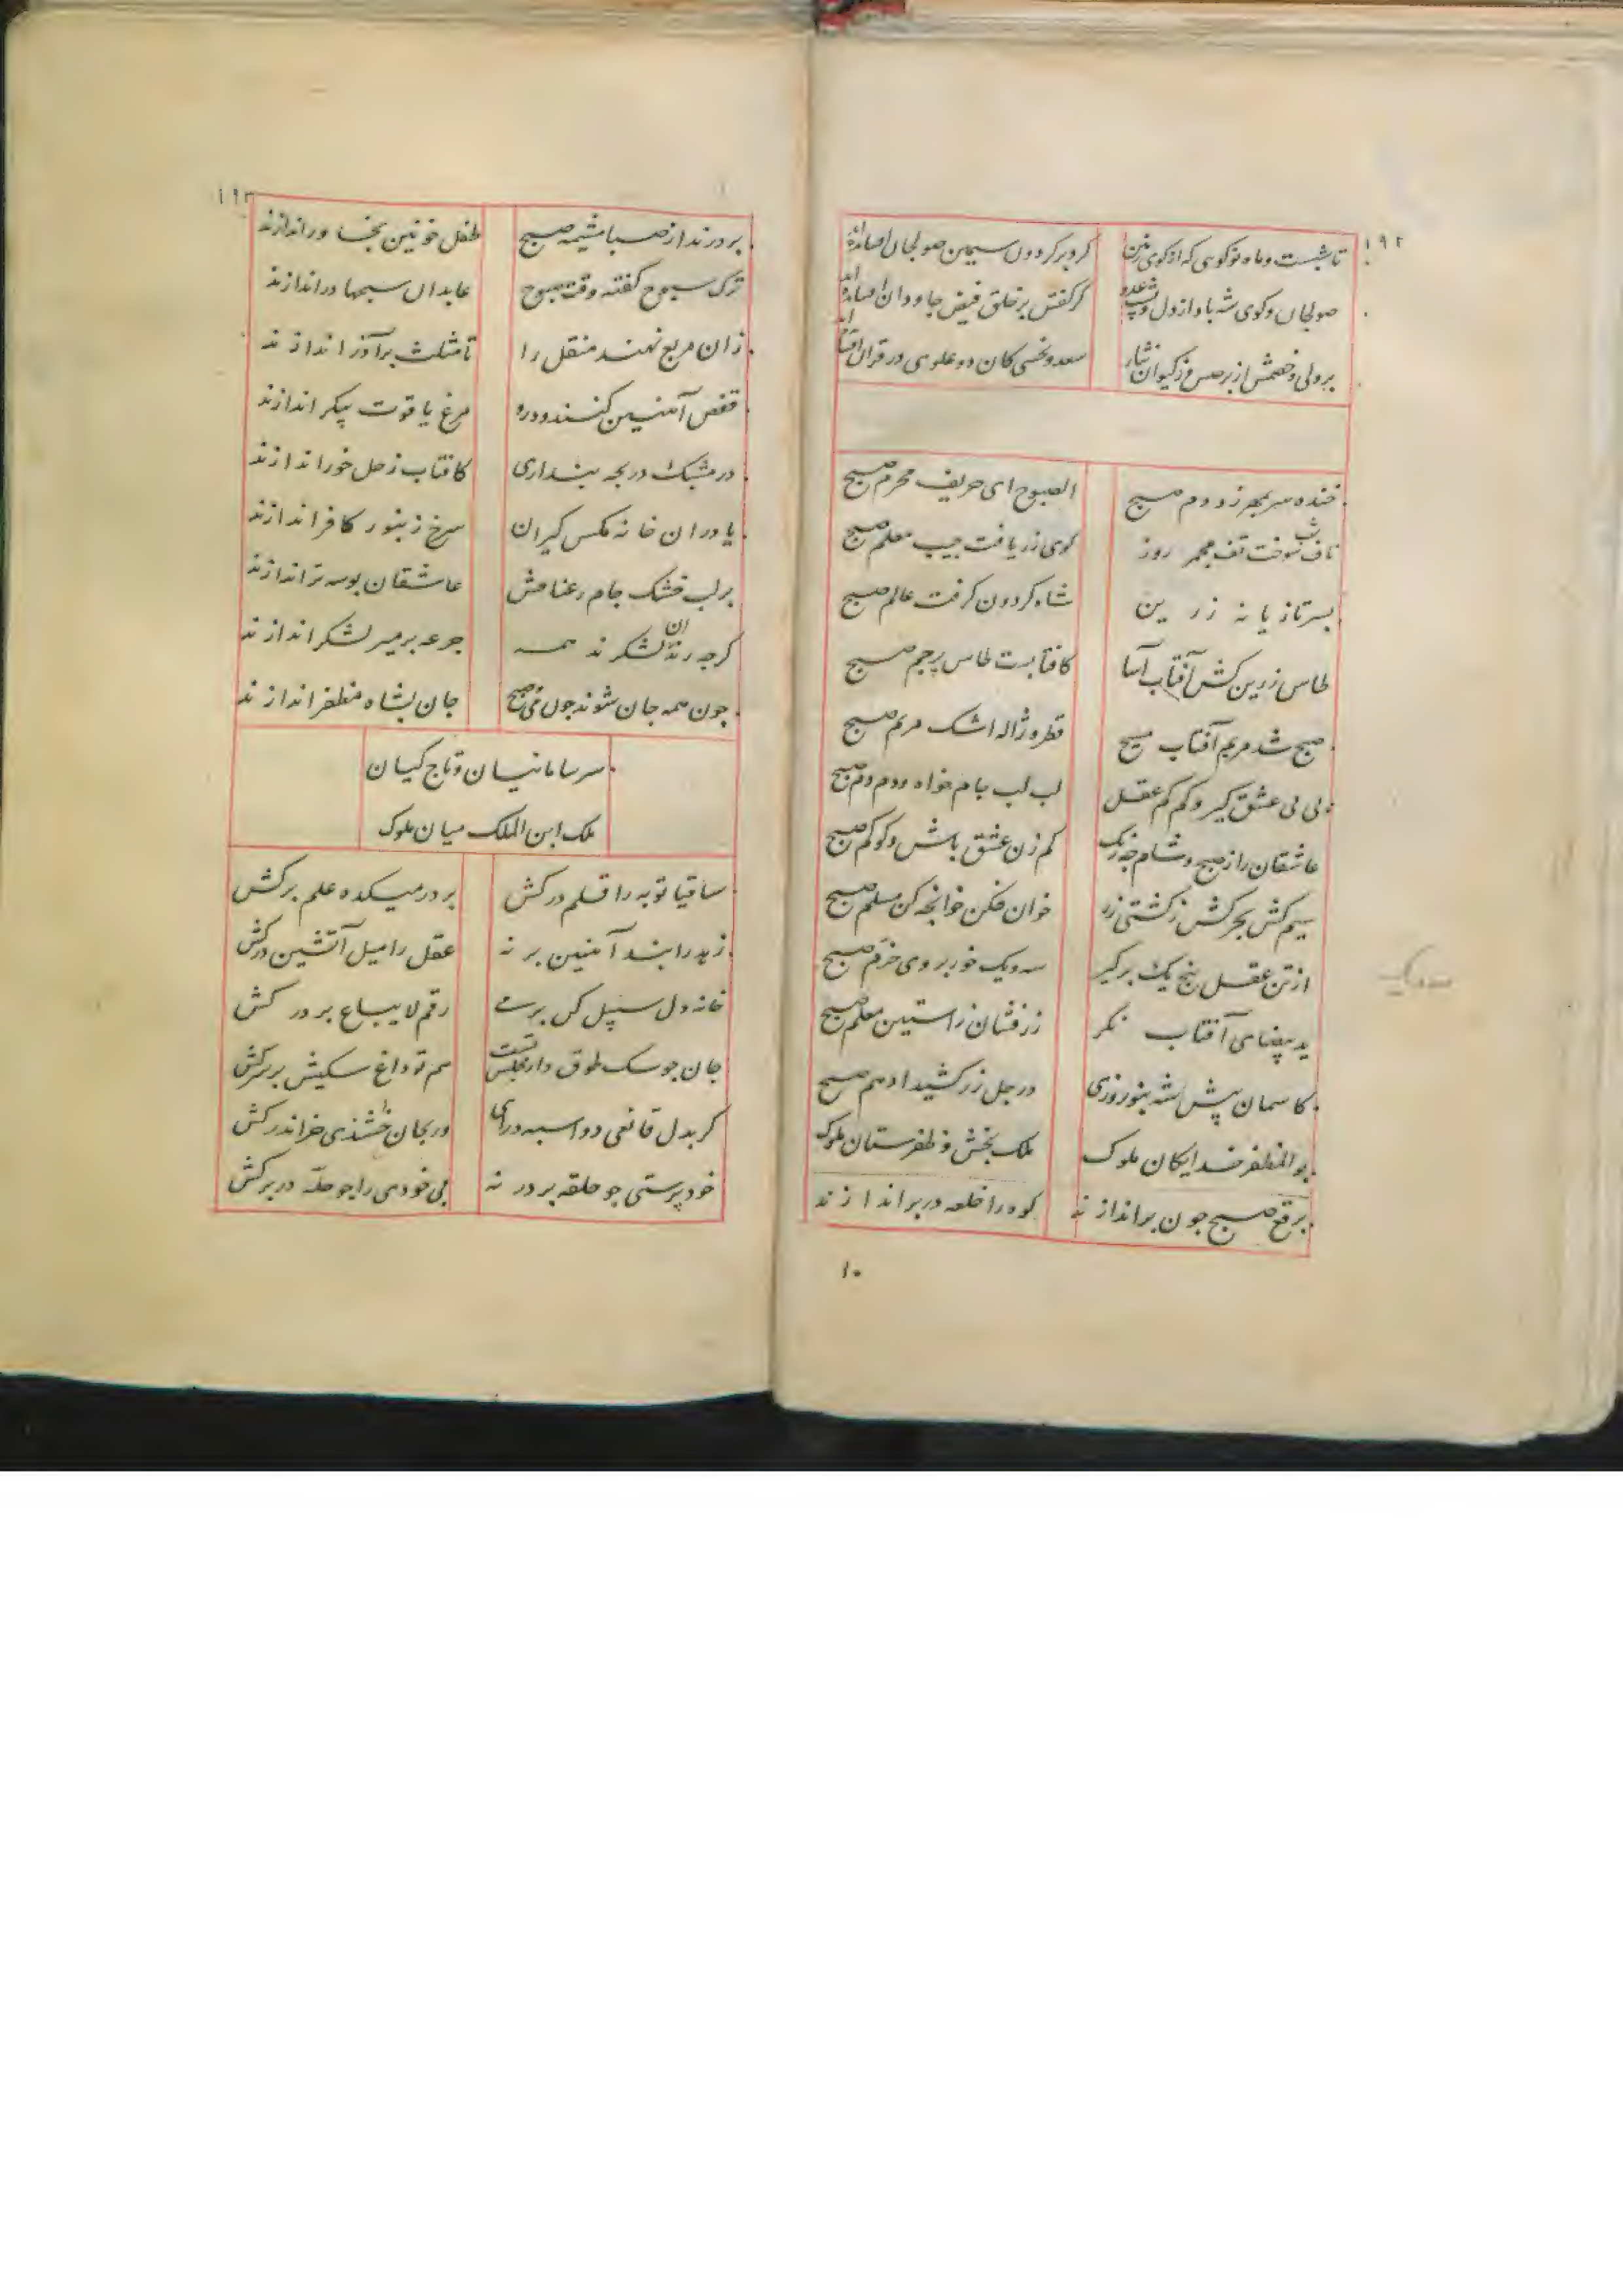 ۱۹۲
تا شبست و ماه نو گویی که از گوی زمین گرد بر گردون سیمین صولجان افشانده‌اند
صولجان و گوی شه باد از دل و پشت عدو کز کفش بر خلق فیض جاودان افشانده‌اند
بر ولی و خصمش از برجیس و ز کیوان نثار سعد و نحسی کان دو علوی در قران افشانده‌اند
خنده سر بمهر زد دم صبح الصبوح ای حریف محرم صبح
ناف شب سوخت تف مجمر روز گوی زر یافت جیب معلم صبح
بستر تازیانه زرین شاه گردون گرفت عالم صبح
طاس زرین کش آفتاب آسا کافتابست طاس پرچم صبح
صبح شد مریم آفتاب مسیح قطره ژاله اشک مریم صبح
پی پی عشق گیر و کم کم عقل لب لب جام خواه و دم دم صبح
عاشقان را ز صبح و شام چه رنگ کم زن عشق باش و گو کم صبح
سیم کش بحر کش ز کشتی زر خوان فکن خوانچه کن مسلم صبح
از تن عقل پنج یک برگیر سه و یک خور بروی خرم صبح
ید بیضای آفتاب نگر زرفشان ز آستین معلم صبح
کاسمان پیش شه بنوروزی در جل زر کشید ادهم صبح
بوالمظفر خدایگان ملوک ملک بخش و ظفرستان ملوک
برقع صبح چون براندازند کوه را خلعه در بر اندازند
۱۰
۱۹۳
بر درند از صبا مشیمه صبح طفل خونین بخاور اندازند
ترک سبوح گفته وقت صبوح عابدان سبحها در اندازند
زان مربع نهند منقل را تا مثلث بر آذر اندازند
قفص آهنین کنند و درو مرغ یاقوت پیکر اندازند
در مشبک دریچه پنداری کافتاب زحل خور اندازند
یا در آن خانه مگس گیران سرخ زنبور کافر اندازند
بر لب خشک جام رعنا فش عاشقان بوسه تر اندازند
گرچه رندان لشکرند همه جرعه بر میر لشکر اندازند
چون همه جان شوند چون می صبح جان بشاه مظفر اندازند
سر سامانیان و تاج کیان
ملک ابن الملک میان ملوک
ساقیا توبه را قلم در کش بر در میکده علم بر کش
زهد را بند آهنین بر نه عقل را میل آتشین در کش
خانه دل سبیل کن بر می رقم لا یباع بر در کش
جان چو سگ طوق دار مجلس تست هم تو داغ سگیش بر سر کش
گر بدل قانعی دو اسبه درآی ور بجان خشندی خر اندر کش
خودپرستی چو حلقه بر در نه بی خودی را چو حله در بر کش